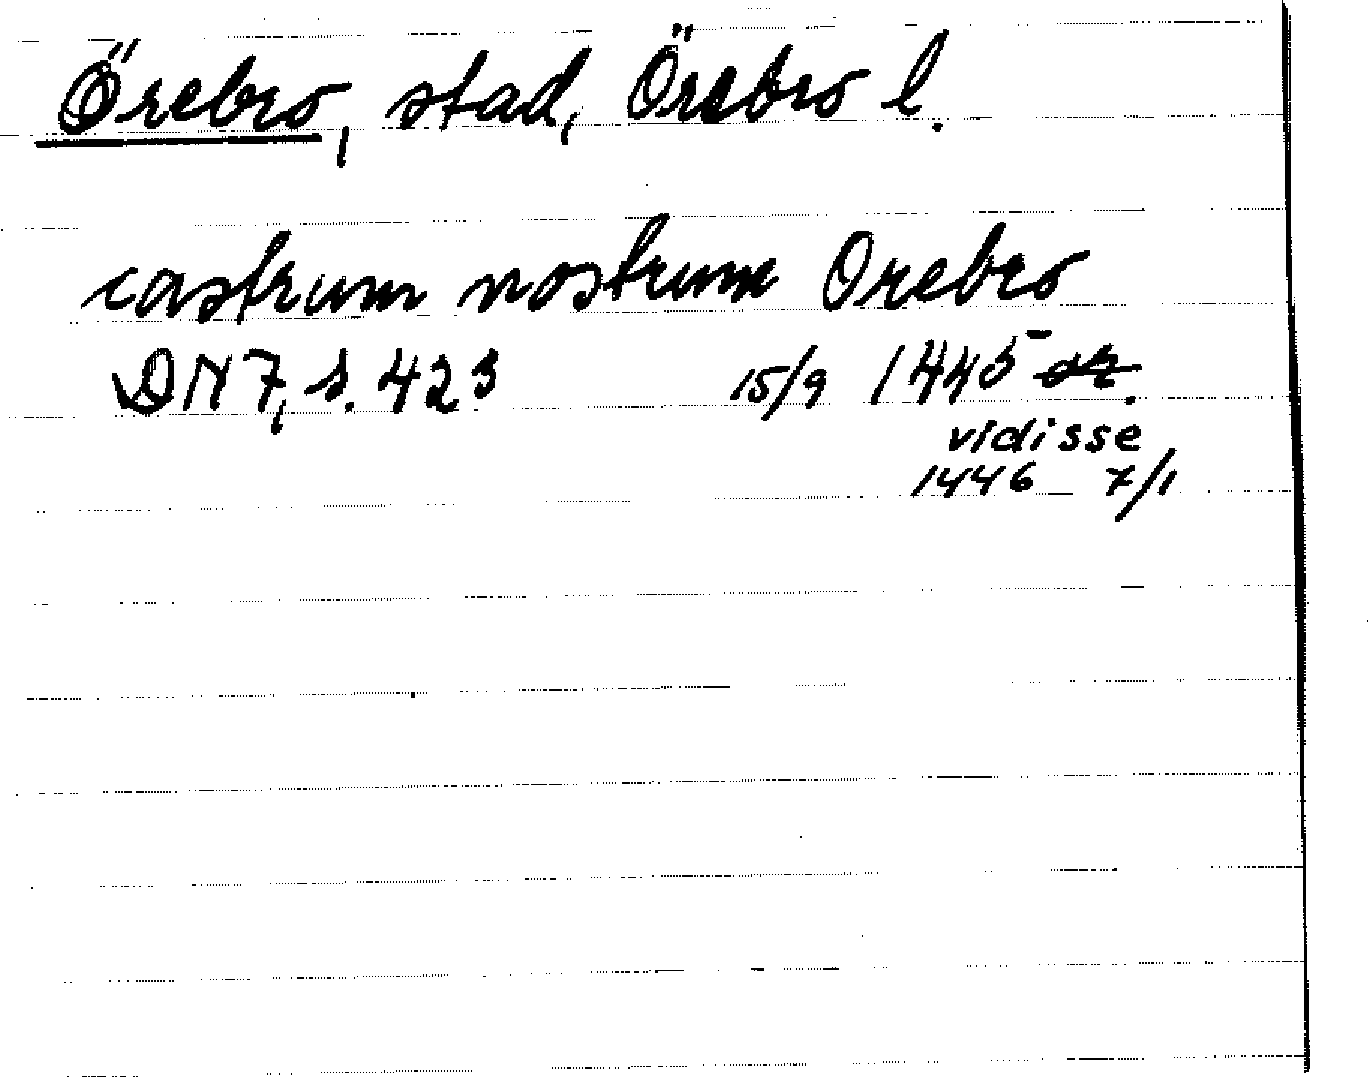 Örebro, stad, Örebro l.
castrum nostrum Orebro
DN 7, s. 423 15/9 1445 or.
vidisse
1446 7/1